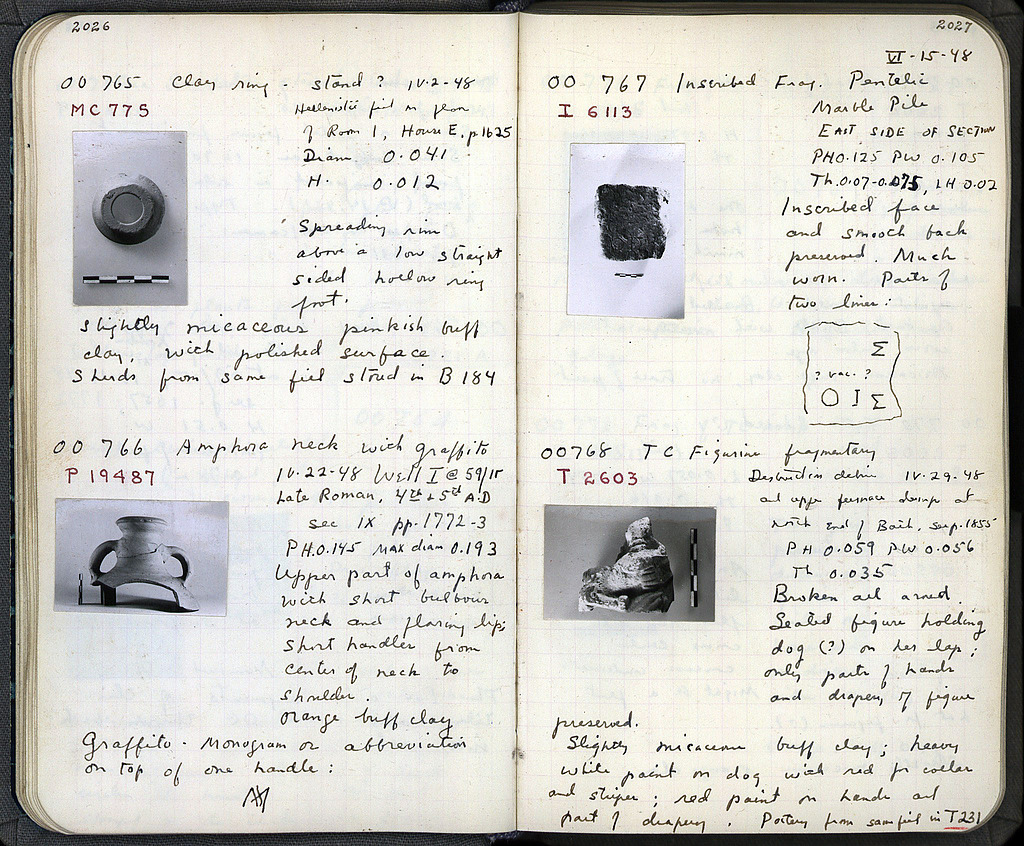 2026
OO 765 Clay ring - stand ? IV-2-48
MC 775
Hellenistic fill in floor
of Room 1, House E, p 1625
Diam 0.041
H. 0.012
Spreading rim
above a low straight
sided hollow ring
foot.
Slightly micaceous pinkish buff
clay, with polished surface.
Sherds from same fill stored in B 184
OO 766 Amphora neck with graffito
P 19487
IV-22-48 Well I @ 59/ΙΓ
Late Roman, 4th & 5th A.D
sec IX pp. 1772-3
P.H. 0.145 Max diam 0.193
Upper part of amphora
with short bulbous
neck and flaring lip;
short handles from
center of neck to
shoulder.
Orange buff clay
Graffito - Monogram or abbreviation
on top of one handle:
2027
VI-15-48
OO 767 Inscribed Frag. Pentelic
I 6113
Marble Pile
EAST SIDE OF SECTION
PH 0.125 PW 0.105
Th. 0.07-0.075, LH 0.02
Inscribed face
and smooth back
preserved. Much
worn. Parts of
two lines:
Σ
? vac. ?
O I Σ
OO768 TC Figurine fragmentary
T 2603
Destruction debris IV-29-48
and upper furnace dump at
north end of Bath, p. 1855
PH 0.059 PW 0.056
Th 0.035
Broken all around.
Seated figure holding
dog (?) on her lap;
only parts of hands
and drapery of figure
preserved.
Slightly micaceous buff clay; heavy
white paint on dog with red for collar
and stripes; red paint on hands and
part of drapery. Pottery from same fill in T 231